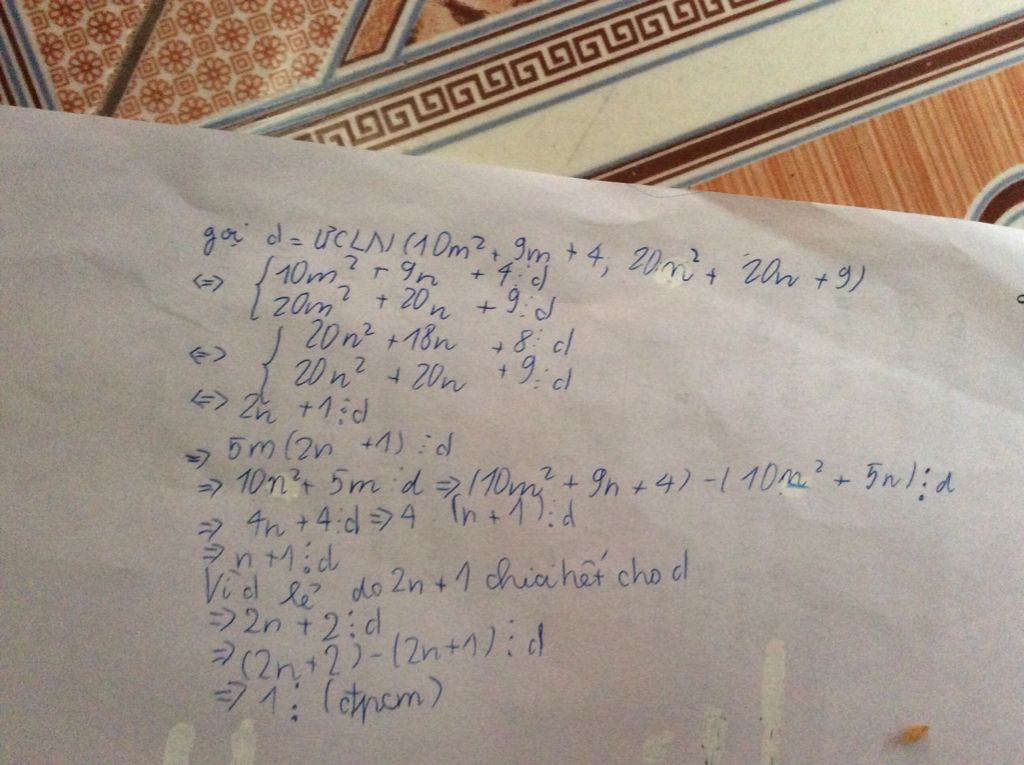 gọi d = ƯCLN (10m² + 9m + 4; 20n² + 20n + 9)
<=> { 10m² + 9n + 4 ⋮ d
20m² + 20n + 9 ⋮ d
<=> { 20n² + 18n + 8 ⋮ d
20n² + 20n + 9 ⋮ d
<=> 2n + 1 ⋮ d
=> 5m (2n + 1) ⋮ d
=> 10n² + 5m ⋮ d => (10m² + 9n + 4) - (10n² + 5n) ⋮ d
=> 4n + 4 ⋮ d => 4 (n + 1) ⋮ d
=> n + 1 ⋮ d
Vì d lẻ do 2n + 1 chia hết cho d
=> 2n + 2 ⋮ d
=> (2n + 2) - (2n + 1) ⋮ d
=> 1 ⋮ (đpcm)